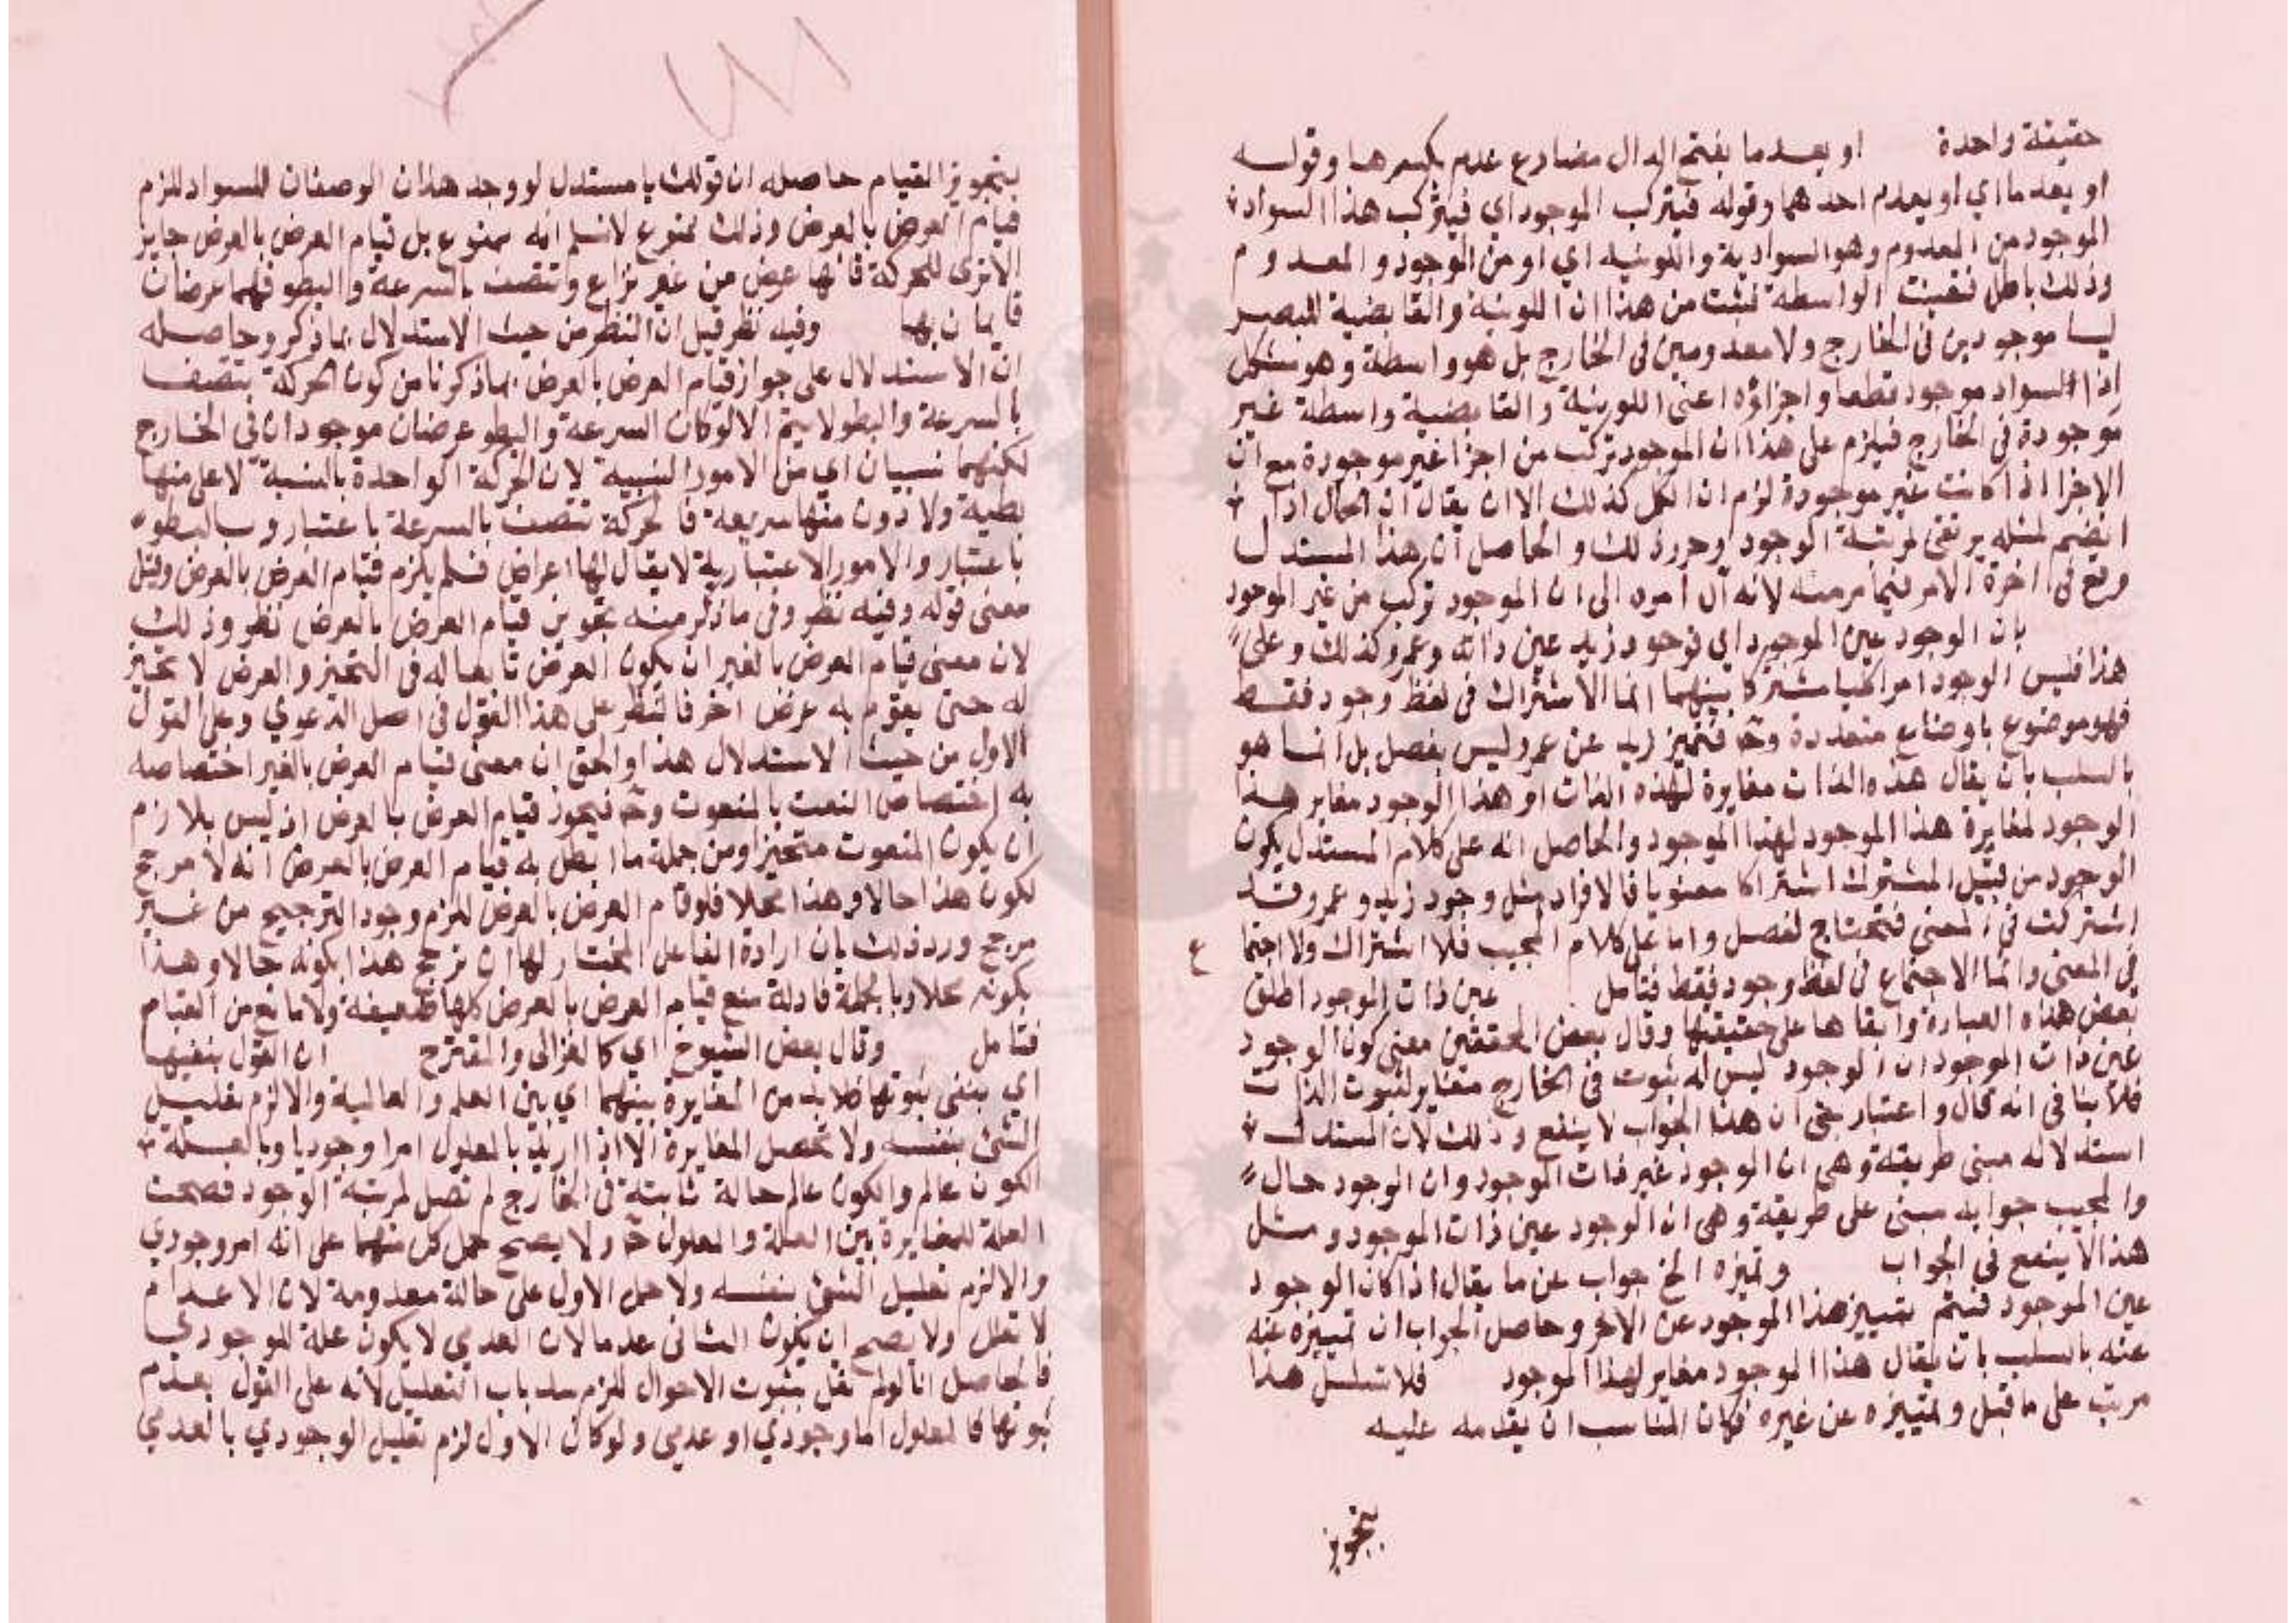 حقيقة واحدة او يعدما بفتح الدال مضارع عدم بكسرها وقوله
او يعدما اي او يعدم احدهما وقوله فيتركب الموجود اي فيتركب هذا السواد
الموجود من المعدوم وهو السوادية واللونيه اي او من الموجود والمعدوم
وذلك باطل فتعينت الواسطه فثبت من هذا ان اللونية والقابضية للبصر
ليسا موجودين في الخارج ولا معدومين في الخارج بل هو واسطة وهو مشكل
اذ السواد موجود قطعا واجزاؤه اعني اللونية والقابضية واسطة غير
موجودة في الخارج فيلزم على هذا ان الموجود تركب من اجزا غير موجودة مع ان
الاجزا اذا كانت غير موجودة لزم ان الكل كذلك الا ان يقال ان الحال اذا
انضم لمثله يرتقى لمرتبة الوجود وحرر ذلك والحاصل ان هذا المستدل
وقع في اخرة الامر فيما فر منه لانه آل امره الى ان الموجود تركب من غير الموجود
بان الوجود عين الموجود اي فوجود زيد عين ذاته وعمرو كذلك وعلى
هذا فليس الوجود امرا كليا مشتركا بينهما انما الاشتراك في لفظ وجود فقط
فهو موضوع باوضاع متعددة وح فتميز زيد عن عمرو ليس بفصل بل انما هو
بالسلب بان يقال هذه الذات مغايرة لهذه الذات او هذا الوجود مغاير هذا
الوجود لمغايرة هذا الموجود لهذا الموجود والحاصل انه على كلام المستدل يكون
الوجود من قبيل المشترك اشتراكا معنويا فالافراد مثل وجود زيد وعمرو قد
اشتركت في المعنى فتحتاج لفصل واما على كلام المجيب فلا اشتراك ولا اجتما
ع
في المعنى وانما الاجتماع في لفظ وجود فقط فتامل عين ذات الموجود اطلق
بعض هذه العبارة وابقاها على حقيقتها وقال بعض المحققين معنى كون الوجود
عين ذات الموجود ان الوجود ليس له ثبوت في الخارج مغاير لثبوت الذات
فلا ينافي انه حال واعتبار بقي ان هذا الجواب لا ينفع وذلك لان المستدل
استدلاله مبني طريقته وهي ان الوجود غير ذات الموجود وان الوجود حال
والمجيب جوابه مبني على طريقة وهي ان الوجود عين ذات الموجود ومثل
هذا لا ينفع في الجواب وتميزه الخ جواب عن ما يقال اذا كان الوجود
عين الموجود فبم تمييز هذا الموجود عن الاخر وحاصل الجواب ان تمييزه عنه
عنه بالسلب بان يقال هذا الموجود مغاير لهذا الموجود فلا تسلسل هذا
مرتب على ما قبل وتمييزه عن غيره فكان المناسب ان يقدمه عليه
بتجويز
بتجويز القيام حاصله ان قولك يا مستدل لو وجد هذان الوصفان للسواد للزم
قيام العرض بالعرض وذلك ممنوع لا نسلم انه ممنوع بل قيام العرض بالعرض جايز
الا ترى للحركة فانها عرض من غير نزاع وتتصف بالسرعة والبطو فهما عرضان
قايمان بها وفيه نظر قيل ان النظر من حيث الاستدلال بما ذكر وحاصله
ان الاستدلال على جواز قيام العرض بالعرض بما ذكرنا من كون الحركة تتصف
بالسرعة والبطو لا يتم الا لو كان السرعة والبطو عرضان موجودان في الخارج
لكنهما نسبيان اي من الامور النسبية لان الحركة الواحدة بالنسبة لاعلى منها
بطيئة ولادون منها سريعة فالحركة تتصف بالسرعة باعتبار وبالبطو
باعتبار والامور الاعتبارية لا يقال لها اعراض فلم يلزم قيام العرض بالعرض وقيل
معنى قوله وفيه نظر وفي ما ذكر منه تجويز قيام العرض بالعرض نظر وذلك
لان معنى قيام العرض بالغير ان يكون العرض تابعا له في التحيز والعرض لا تحيز
له حتى يقوم به عرض اخر فالنظر على هذا القول في اصل الدعوي وعلى القول
الاول من حيث الاستدلال هذا والحق ان معنى قيام العرض بالغير اختصاصه
به اختصاص النعت بالمنعوت وح فيجوز قيام العرض بالعرض اذ ليس بلازم
ان يكون المنعوت متحيزا ومن جملة ما ابطل به قيام العرض بالعرض انه لا مرجح
لكون هذا حالا وهذا محلا فلو قام العرض بالعرض للزم وجود الترجيح من غير
مرجح ورد ذلك بان ارادة الفاعل المختار لها ان ترجح هذا بكونه حالا وهذا
بكونه محلا وبالجملة فادلة منع قيام العرض بالعرض كلها ضعيفة ولا مانع من القيام
فتامل وقال بعض الشيوخ اي كالغزالي والمقترح ان القول بنفيها
اي بنفي ثبوتها فلا بد من المغايرة بينهما اي بين العلم والعالمية والا لزم تعليل
الشئ بنفسه ولا تحصل المغايرة الا اذا اريد بالمعلول امرا وجوديا وبالعلة
الكون عالم والكون عالم حالة ثابتة في الخارج لم تصل لمرتبة الوجود فصحت
العلة للمغايرة بين العلة والمعلول ح ولا يصح حمل كل منهما على انه امر وجودي
والا لزم تعليل الشئ بنفسه ولا حمل الاول على حالة معدومة لان الاعدام
لا تعلل ولا يصح ان يكون الثاني عدما لان العدمي لا يكون علة للوجودي
فالحاصل انا لو لم نقل بثبوت الاحوال للزم سد باب التعليل لانه على القول بعدم
ثبوتها كالمعلول اما وجودي او عدمي ولو كان الاول لزم تعليل الوجودي بالعدمي